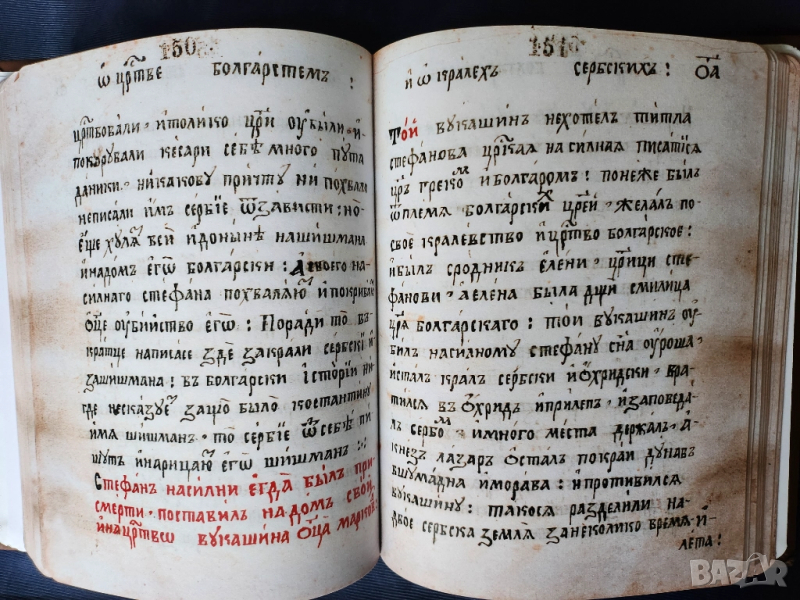 150
ѿ црⷭ҇твѣ болгарстемъ :
црⷭ҇твовали · и толико цр҃и оубили · и
покорували кесари себѣ много пута
даники · никакову причту ни похвали
не писали имъ сербїе ѿ зависти : но
еще хулѧтъ всѝ и донынѣ на шишмана
и на домъ егѡ болгарски : а своего на-
силнаго стефана похвалаютъ и покриваю
оц҃е оубийство егѡ : И поради то въ
кратце написасе зде за крали сербскїи
за шишмана : въ болгарски їсторїи ни
где не сказуетъ защо было костантину
имя шишманъ · то сербїе ѿ себѣ пи
шутъ и нарицаютъ егѡ шишманъ :
Стефанъ насилни егда былъ при
смерти · поставилъ на домъ свой
и на црⷭ҇тво вукашина оц҃а марков
151
и ѿ кралехъ сербскихъ : ѿа
Той вукашинъ не хотелъ титла
стефанова црⷭ҇кая насилная писатися
цр҃ъ грекомъ и болгаромъ : понеже былъ
ѿ племя болгарскихъ цр҃ей · желалъ по
свое кралевство и црⷭ҇тво болгарское :
и былъ сродникъ елени · цр҃ици сте
фанови · а елена была дщ҃и смилица
цр҃а болгарскаго : той вукашинъ оу
билъ насилному стефану сн҃а оуроша
и сталъ кралъ сербски и охридски · вра
тился въ охридъ и прилепъ · и заповеда
лъ сербомъ и много места держалъ · а
кнезъ лазаръ осталъ покраи дунавъ
в шумадна и морава : и противился
вукашину : такося разделили на
двое сербска земля за неколико время · и
лета :
BAZAR